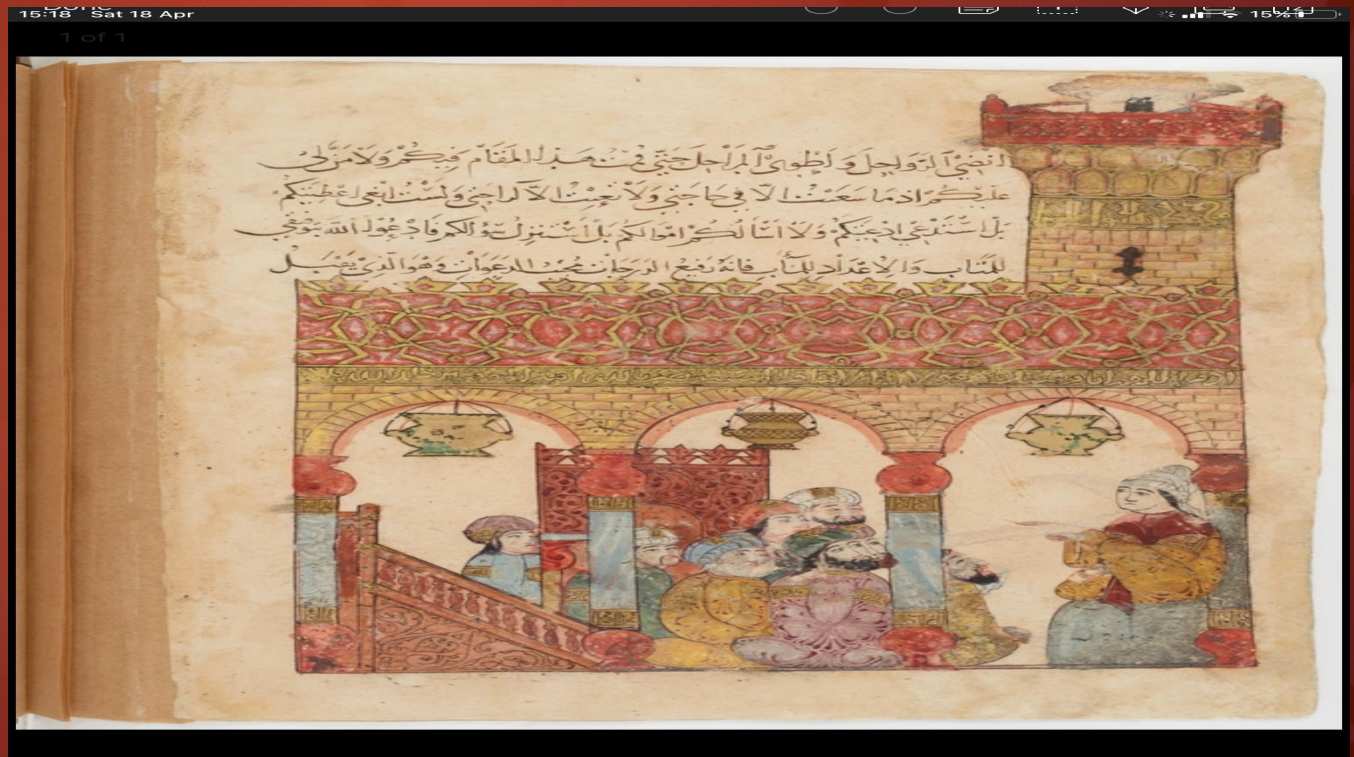 Done
15:18 Sat 18 Apr 15%
1 of 1
انضي الرواحل و اطوي المراحل حتى قمت هذا المقام فيكم ولا من لي
عليكم اذ ما سعيت الا في حاجتي ولا تعبت الا لراحتي ولست ابغي اعطيتكم
بل استدعي ادعيتكم ولا اسالكم اموالكم بل استنزل سؤالكم فادعوا الله بتوفيقي
للمتاب والاعداد للمآب فانه رفيع الدرجات مجيب الدعوات وهو الذي يقبل